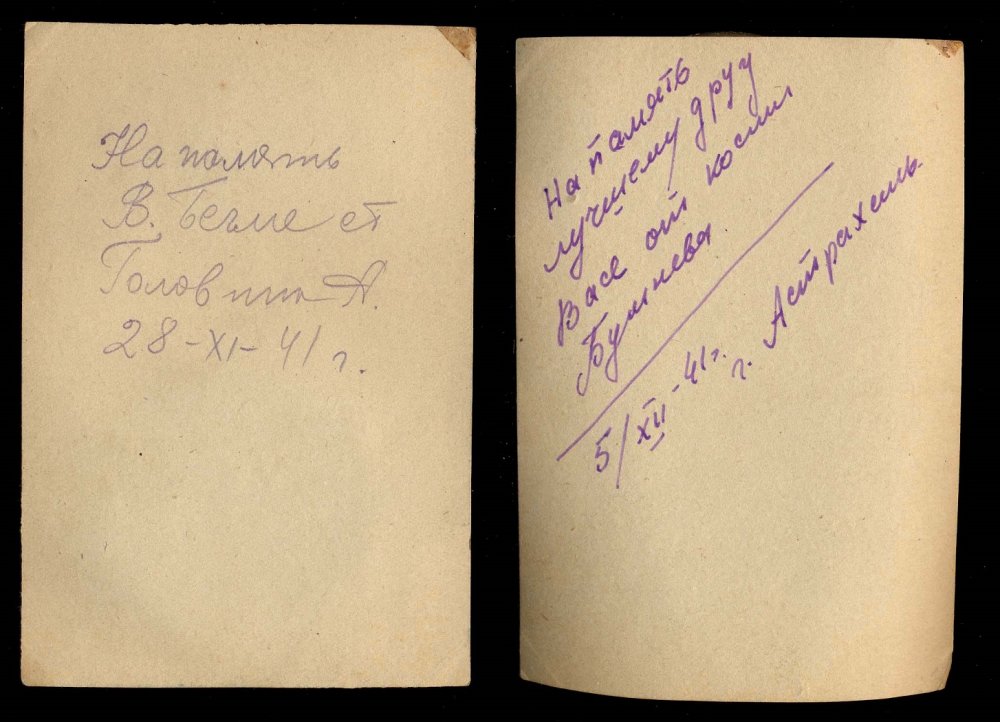 На память
В. от
Головина А.
28-XI-41 г.
На память
лучшему другу
Васе от Кости
5/XII-41 г.
г. Астрахань.